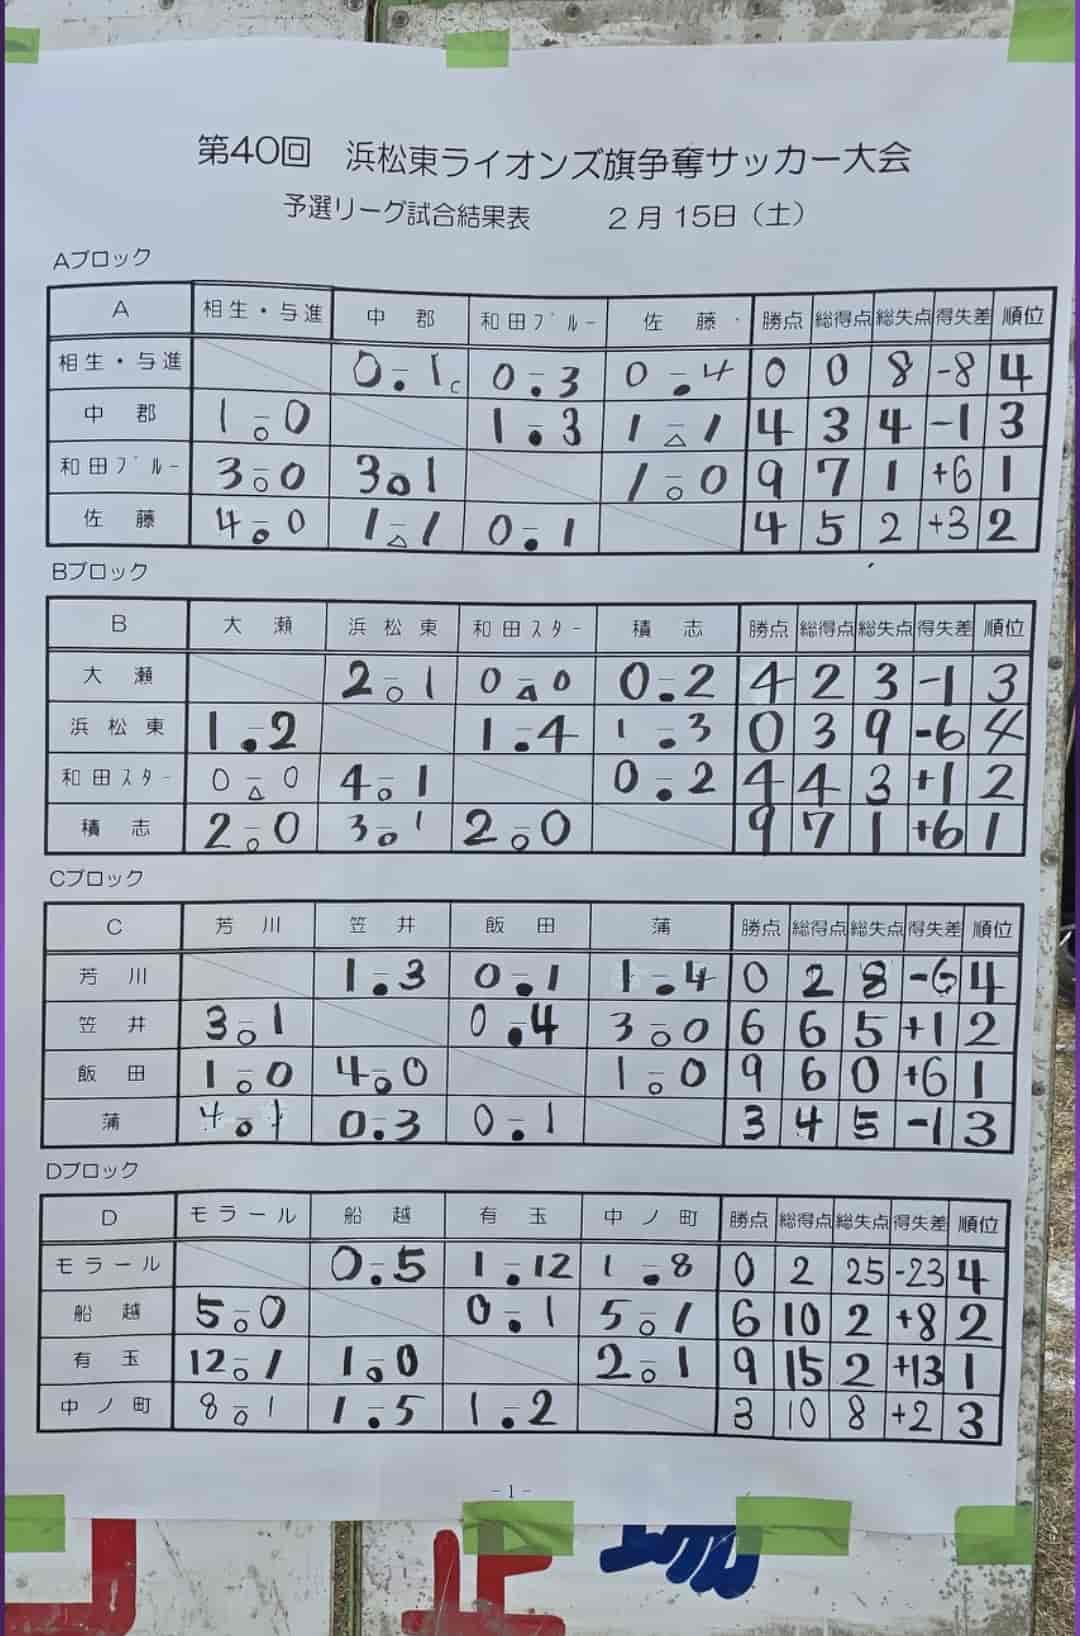 第40回 浜松東ライオンズ旗争奪サッカー大会
予選リーグ試合結果表 2月15日（土）
Aブロック
A 相生・与進 中郡 和田ブルー 佐藤 勝点 総得点 総失点 得失差 順位
相生・与進 0●1 0●3 0●4 0 0 8 -8 4
中郡 1○0 1●3 1△1 4 3 4 -1 3
和田ブルー 3○0 3○1 1○0 9 7 1 +6 1
佐藤 4○0 1△1 0●1 4 5 2 +3 2
Bブロック
B 大瀬 浜松東 和田スター 積志 勝点 総得点 総失点 得失差 順位
大瀬 2○1 0△0 0●2 4 2 3 -1 3
浜松東 1●2 1●4 1●3 0 3 9 -6 4
和田スター 0△0 4○1 0●2 4 4 3 +1 2
積志 2○0 3○1 2○0 9 7 1 +6 1
Cブロック
C 芳川 笠井 飯田 蒲 勝点 総得点 総失点 得失差 順位
芳川 1●3 0●1 1●4 0 2 8 -6 4
笠井 3○1 0●4 3○0 6 6 5 +1 2
飯田 1○0 4○0 1○0 9 6 0 +6 1
蒲 4○1 0●3 0●1 3 4 5 -1 3
Dブロック
D モラール 船越 有玉 中ノ町 勝点 総得点 総失点 得失差 順位
モラール 0●5 1●12 1●8 0 2 25 -23 4
船越 5○0 0●1 5○1 6 10 2 +8 2
有玉 12○1 1○0 2○1 9 15 2 +13 1
中ノ町 8○1 1●5 1●2 3 10 8 +2 3
- 1 -